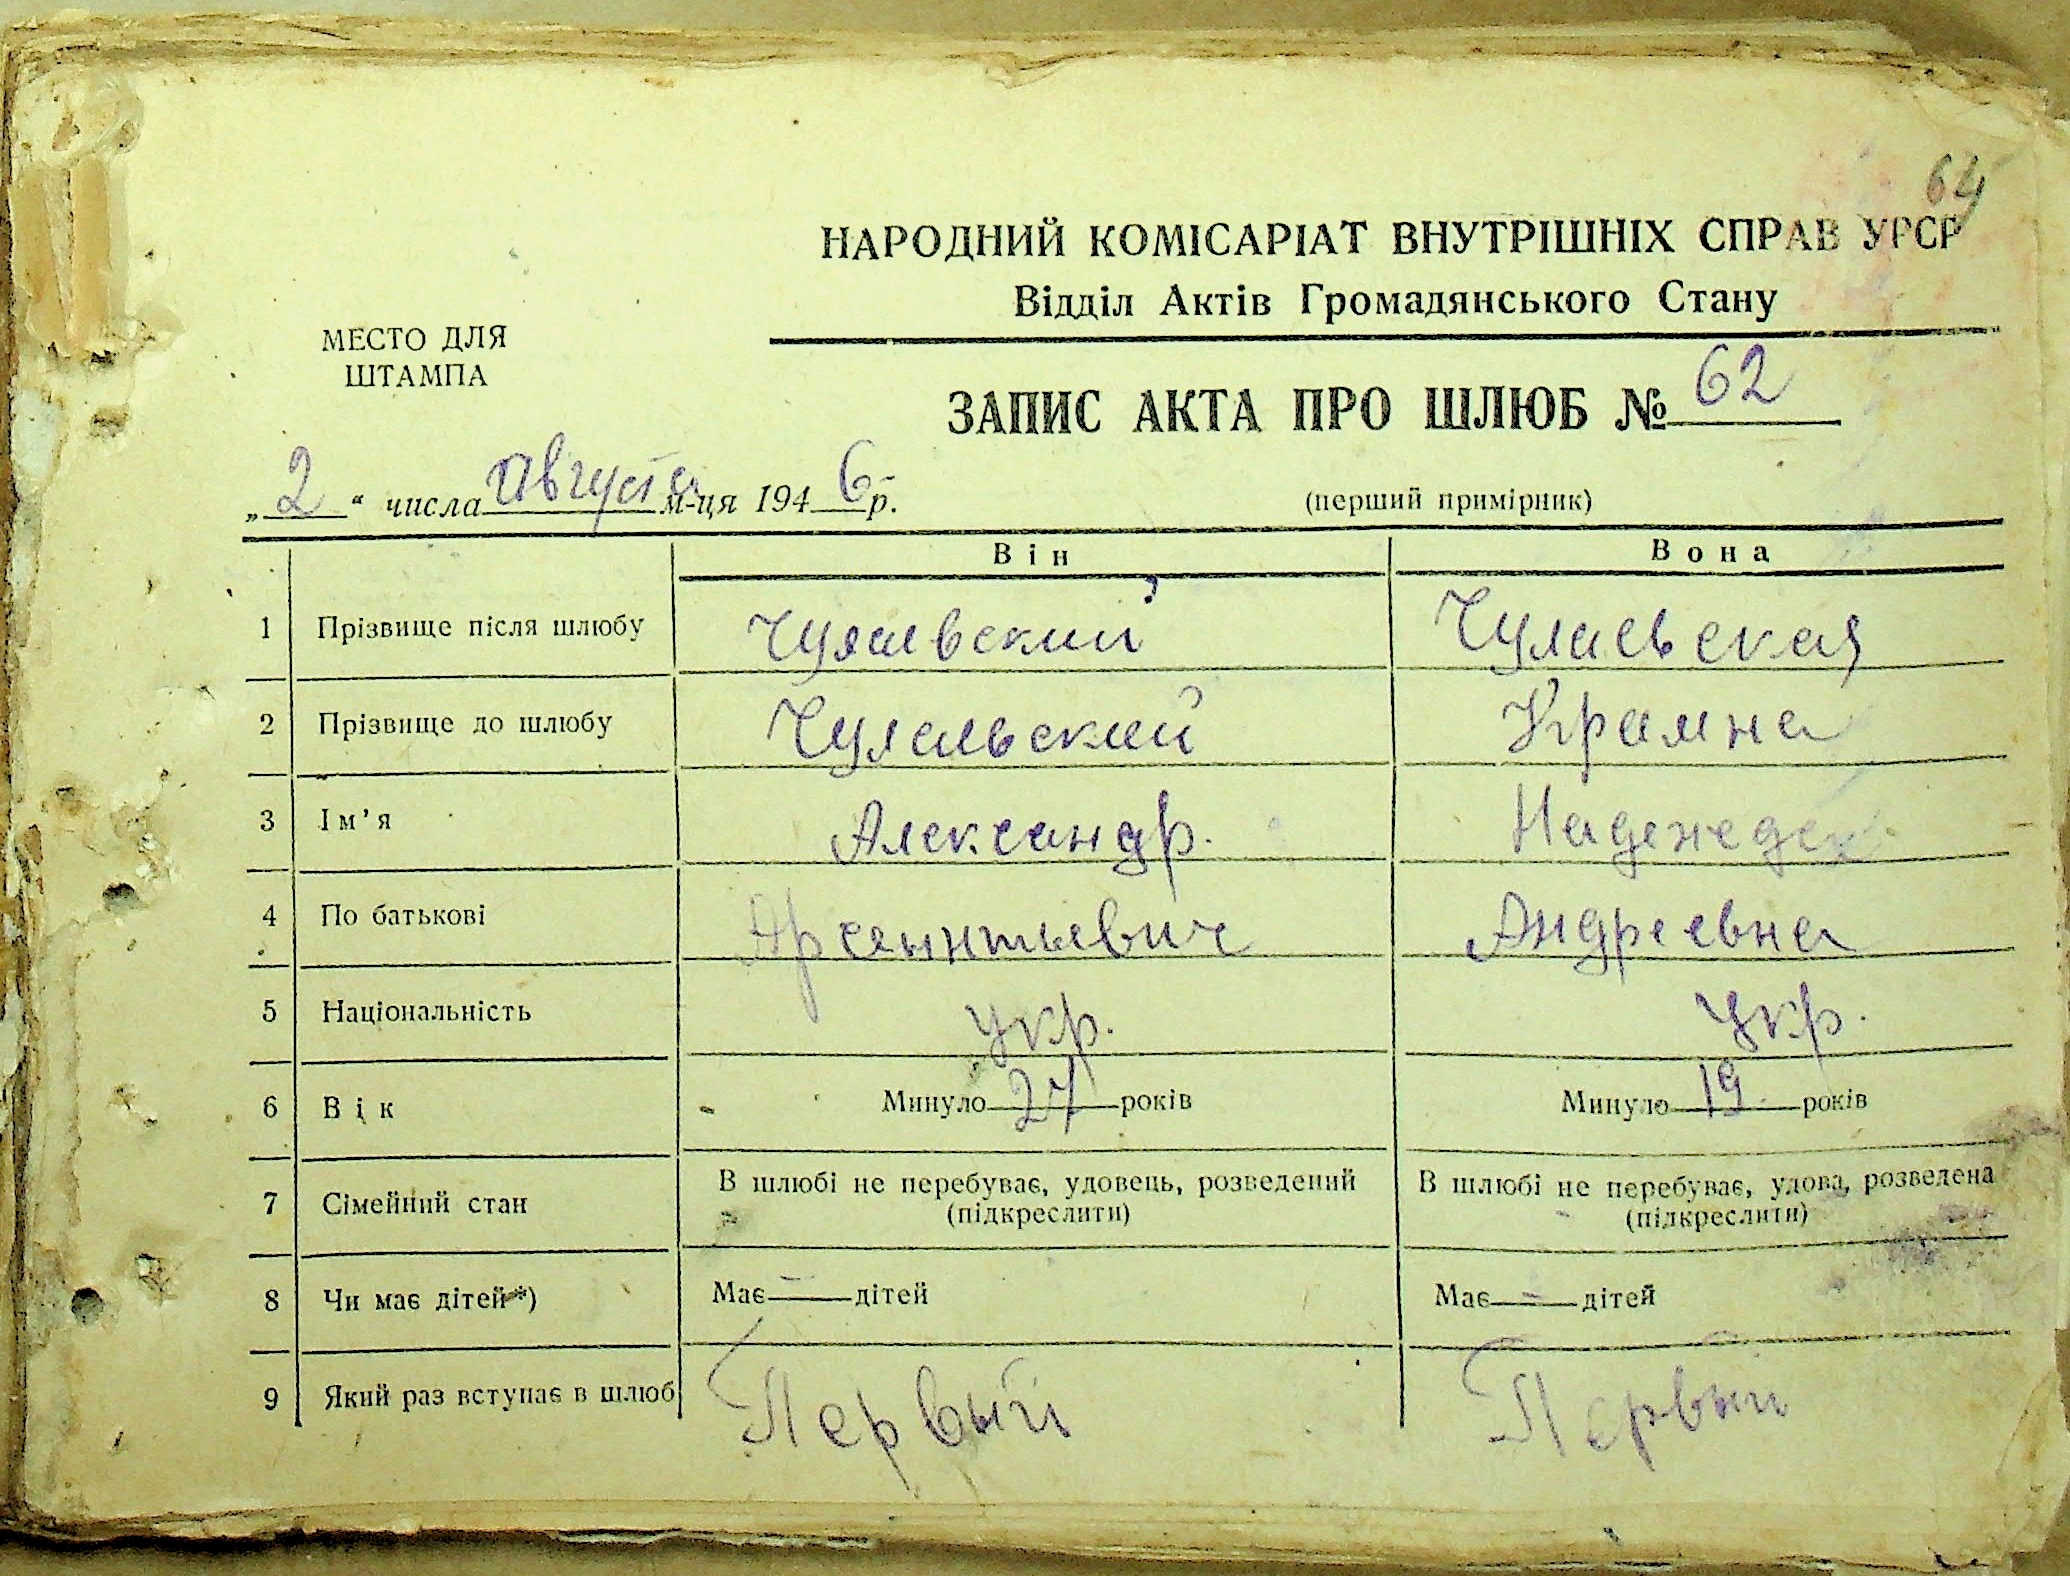 64
НАРОДНИЙ КОМІСАРІАТ ВНУТРІШНІХ СПРАВ УРСР
Відділ Актів Громадянського Стану
МЕСТО ДЛЯ
ШТАМПА
ЗАПИС АКТА ПРО ШЛЮБ № 62
„2“ числа Августа м-ця 1946 р.
(перший примірник)
Він Вона
1 Прізвище після шлюбу
2 Прізвище до шлюбу
3 Ім’я Александр. Надежда
4 По батькові Андреевна
5 Національність укр. укр.
6 Вік Минуло 27 років Минуло 19 років
7 Сімейний стан В шлюбі не перебуває, удовець, розведений В шлюбі не перебуває, удова, розведена
(підкреслити) (підкреслити)
8 Чи має дітей*) Має – дітей Має – дітей
9 Який раз вступає в шлюб Первый Первый